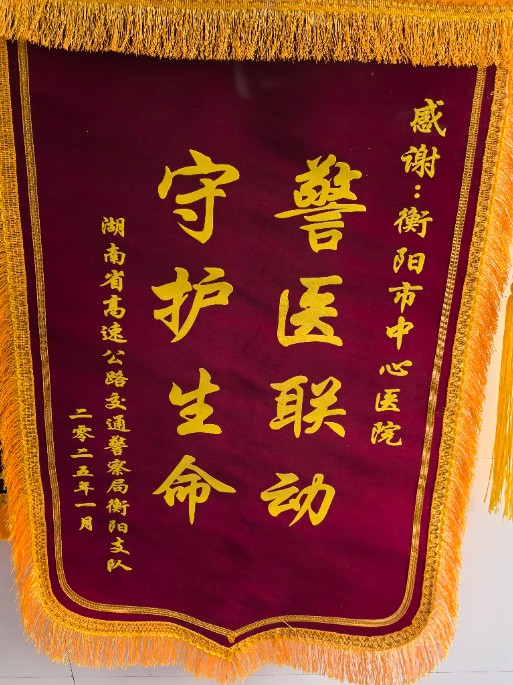 感谢：衡阳市中心医院
警医联动
守护生命
湖南省高速公路交通警察局衡阳支队
二零二五年一月